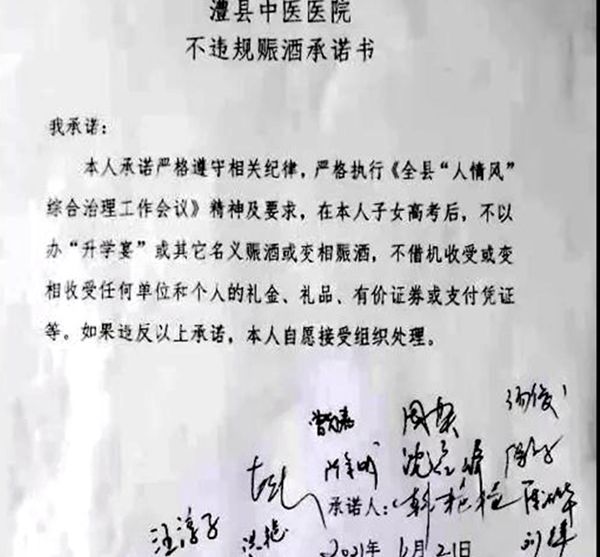 澧县中医医院
不违规赈酒承诺书
我承诺：
本人承诺严格遵守相关纪律，严格执行《全县“人情风”
综合治理工作会议》精神及要求，在本人子女高考后，不以
办“升学宴”或其它名义赈酒或变相赈酒，不借机收受或变
相收受任何单位和个人的礼金、礼品、有价证券或支付凭证
等。如果违反以上承诺，本人自愿接受组织处理。
承诺人：
2021年6月21日